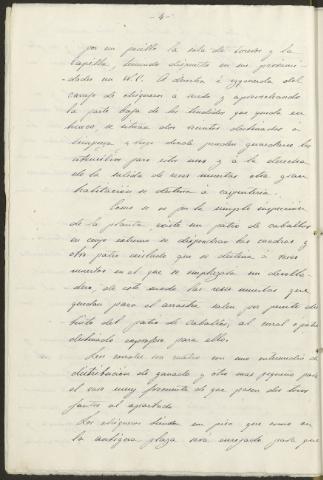 - 4 -
por un pasillo la sala de toreros y la
Capilla, teniendo dispuesta en sus proximi-
-dades un W.C. A derecha é izquierda del
y aprovechando
la parte baja de los tendidos que queda en
hueco, se sitúan dos recintos destinados á
limpieza y donde puedan guardarse los
utensilios para estos usos y á la derecha
de la salida de reses muertas otra gran
habitación se destina á carpintería.
Como se ve por la simple inspección
de la planta, existe un patio de caballos
en cuyo extremo se dispondrán las cuadras y
otro patio aislado que se destina á reses
muertas en el que se emplazará un desolla-
dero, de este modo las reses muertas que
quedan para el arrastre salen por puerta dis-
tinta del patio de caballos, al corral
destinado para ellos.
Los corrales son cuatro con uno intermedio de
distribución de ganado y otro mas pequeño para
el caso muy frecuente de que pasen dos toros
juntos al apartado.
Los chiqueros tienen un piso que como en
la antigua plaza será enrejado para que